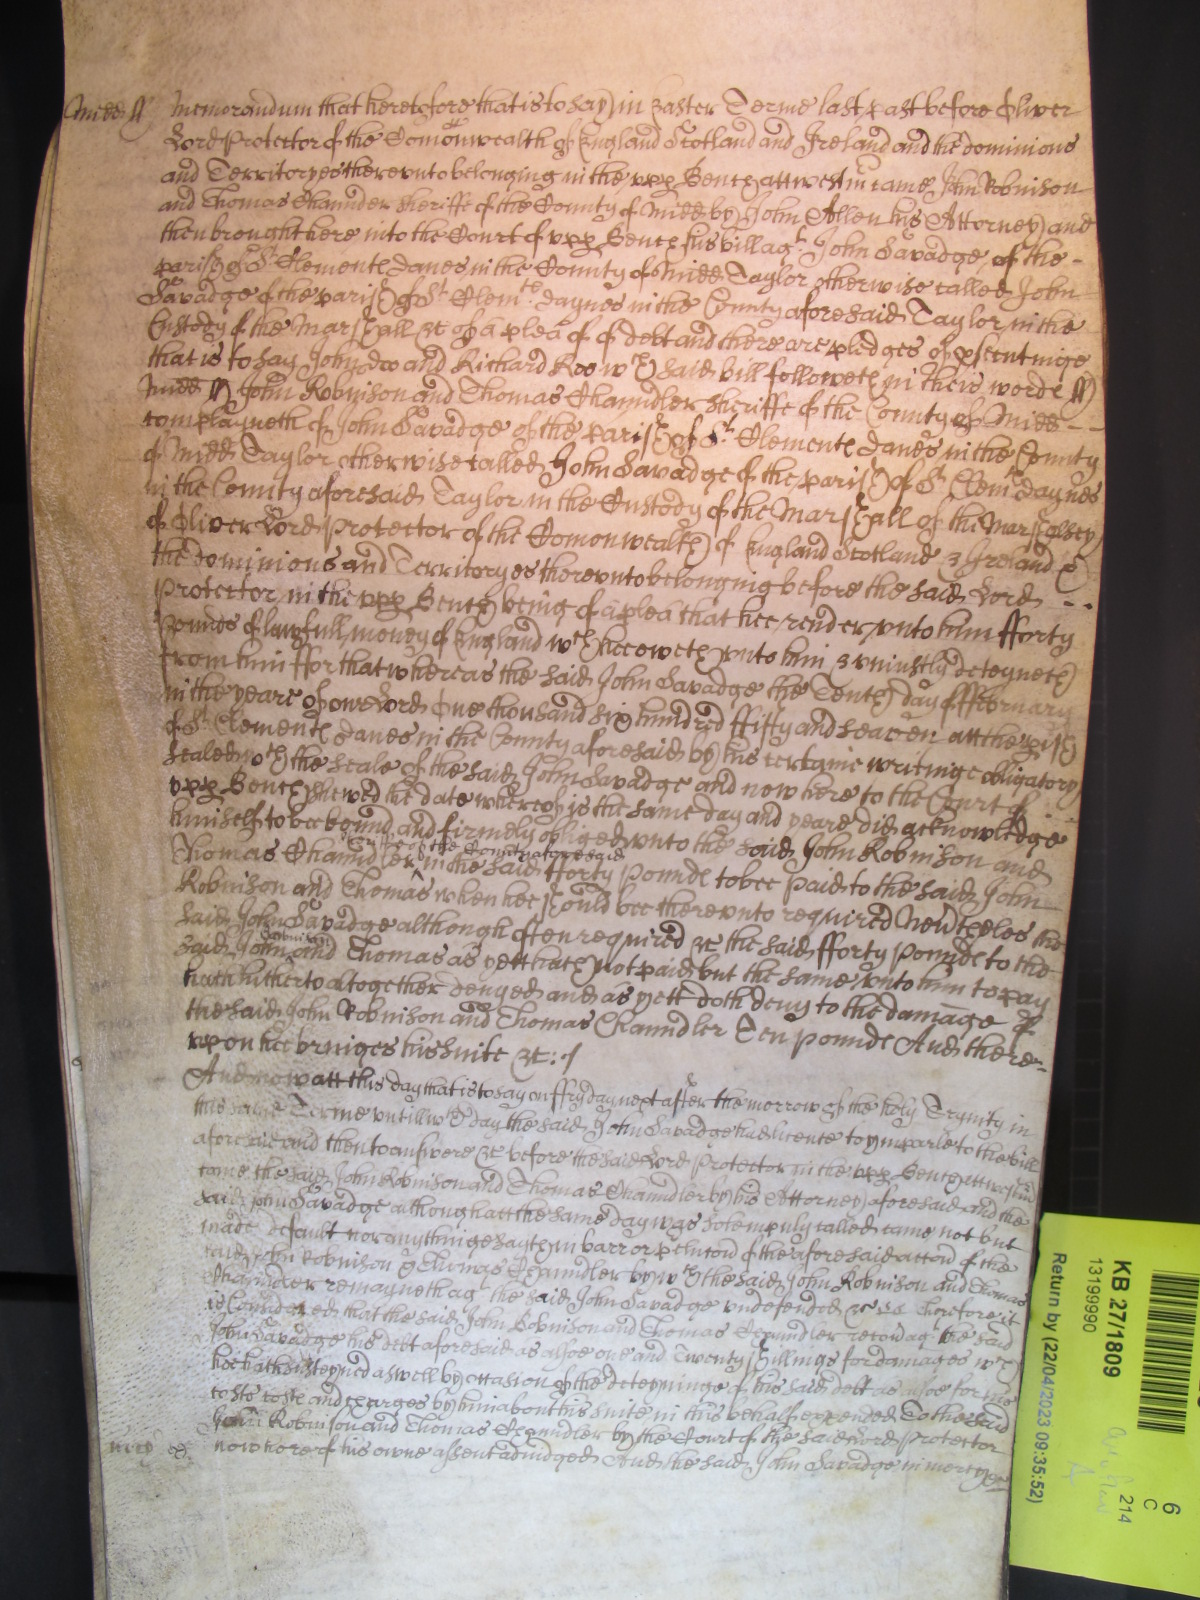 Midd ss Memorandum that heretofore that is to say in Easter Terme last past before Oliver
Lord Protector of the Comonwealth of England Scotland and Ireland and the dominions
and Territoryes thereunto belonging in the upp Bench att Westm came John Robinson
and Thomas Chaundler Sheriffe of the County of Midd by John Allen his Attorney and
then brought here into the Court of upp Bench his bill agt John Savadge of the
parish of St Clement Danes in the County of Midd Taylor otherwise called John
Savadge of the parish of St Clemte daynes in the County aforesaid Taylor in the
Custody of the Marshall &c of a plea of debt and there are pledges of psecutinge
that is to say John Doo and Richard Roo wch said bill followeth in theis worde ss
Midd ss John Robinson and Thomas Chaundler Sheriffe of the County of Midd
complayneth of John Savadge of the parish of St Clement Danes in the County
of Midd Taylor otherwise called John Savadge of the parish of St Clemte daynes
in the County aforesaid Taylor in the Custody of the Marshall of the Marshalsey
of Oliver Lord Protector of the Comonwealth of England Scotland & Ireland &
the dominions and Territoryes thereunto belonging before the said Lord
Protector in the upp Bench being of a plea that hee render unto him fforty
Pounde of lawfull money of England wch hee oweth unto him & uniustly deteyneth
from him ffor that whereas the said John Savadge the Tenth day of ffebruary
in the yeare of our Lord One thousand six hundred ffifty and seaven att the pish
of St Clement Danes in the County aforesaid by his certaine writinge obligatory
sealed wth the seale of the said John Savadge and now here to the Court of
upp Bench shewed the date whereof is the same day and yeare did acknowledge
himself to bee bound and firmely obliged unto the said John Robinson and
Thomas Chaundler Sheriffe of the County aforesaid in the said fforty Pounde to bee paid to the said John
Robinson and Thomas when hee should bee thereunto required Neverthelesse the
said John Savadge although often required &c the said fforty Pounde to the
said John Robinson and Thomas as yett hath not paid but the same unto him to pay
hath hitherto altogether denyed and as yett doth deny to the damage of
the said John Robinson and Thomas Chaundler Ten pounde And there-
upon hee bringes his suite &c:
And now att this day that is to say on ffryday next after the morrow of the holy Trynity in
this same Terme untill wch day the said John Savadge had licence to imparle to the bill
aforesaid and then to answere &c before the said Lord Protector in the upp Bench att Westm
came the said John Robinson and Thomas Chaundler by his Attorney aforesaid and the
said John Savadge although att the same day was solempnly called came not but
made default nor anythinge sayth in barr or pclusion of the aforesaid accon of the
said John Robinson & Thomas Chaundler by wch the said John Robinson and Thomas
Chaundler remayneth agt the said John Savadge undefended &c Therefore it
is Considered that the said John Robinson and Thomas Chaundler recov agt the said
John Savadge his debt aforesaid as alsoe one and Twenty shillings for damages wch
hee hath susteyned aswell by occasion of the deteyninge of his said debt as alsoe for his
costs and charges by him about his suite in this behalf expended To the said
John Robinson and Thomas Chaundler by the Court of the said Lord Protector
now here of his owne assent adiudged And the said John Savadge in mercy &c
KB 27/1809
13199990
Return by (22/04/2023 09:35:52)
6
C
214